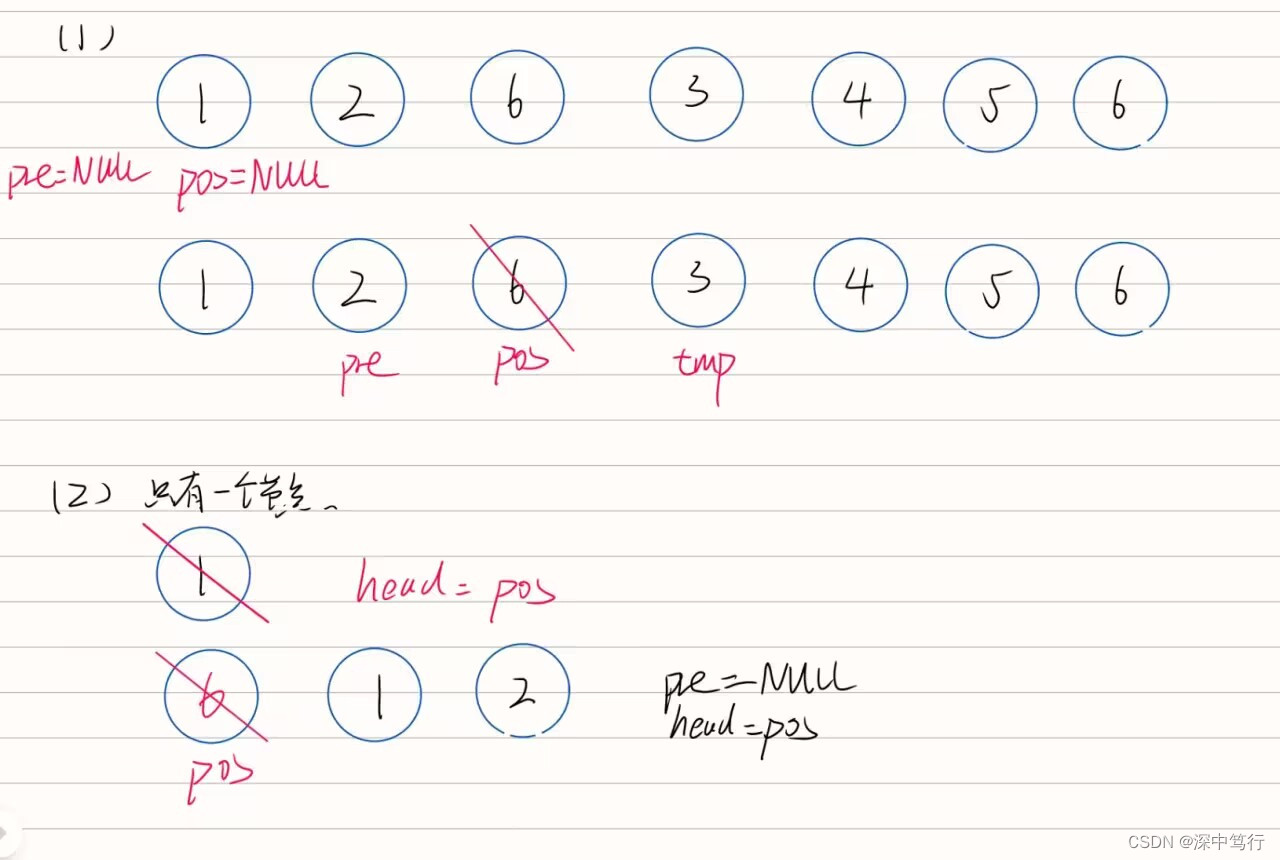 (1)
1 2 6 3 4 5 6
pre=NULL pos=NULL
1 2 6 3 4 5 6
pre pos tmp
(2) 只有一个节点、
1 head=pos
6 1 2 pre=NULL
head=pos
pos
CSDN @深中笃行